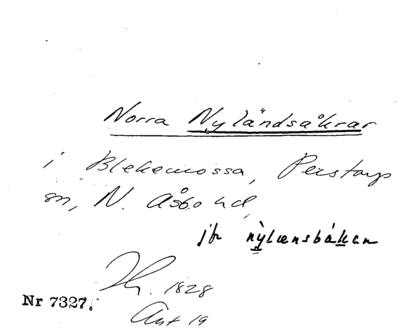 Norra Nyländsåkrar
i Blekemossa, Perstorps
sn, N. Åsbo hd,
jfr nýlænsbákan
Lh. 1828
Nr 7327.
Akt 19